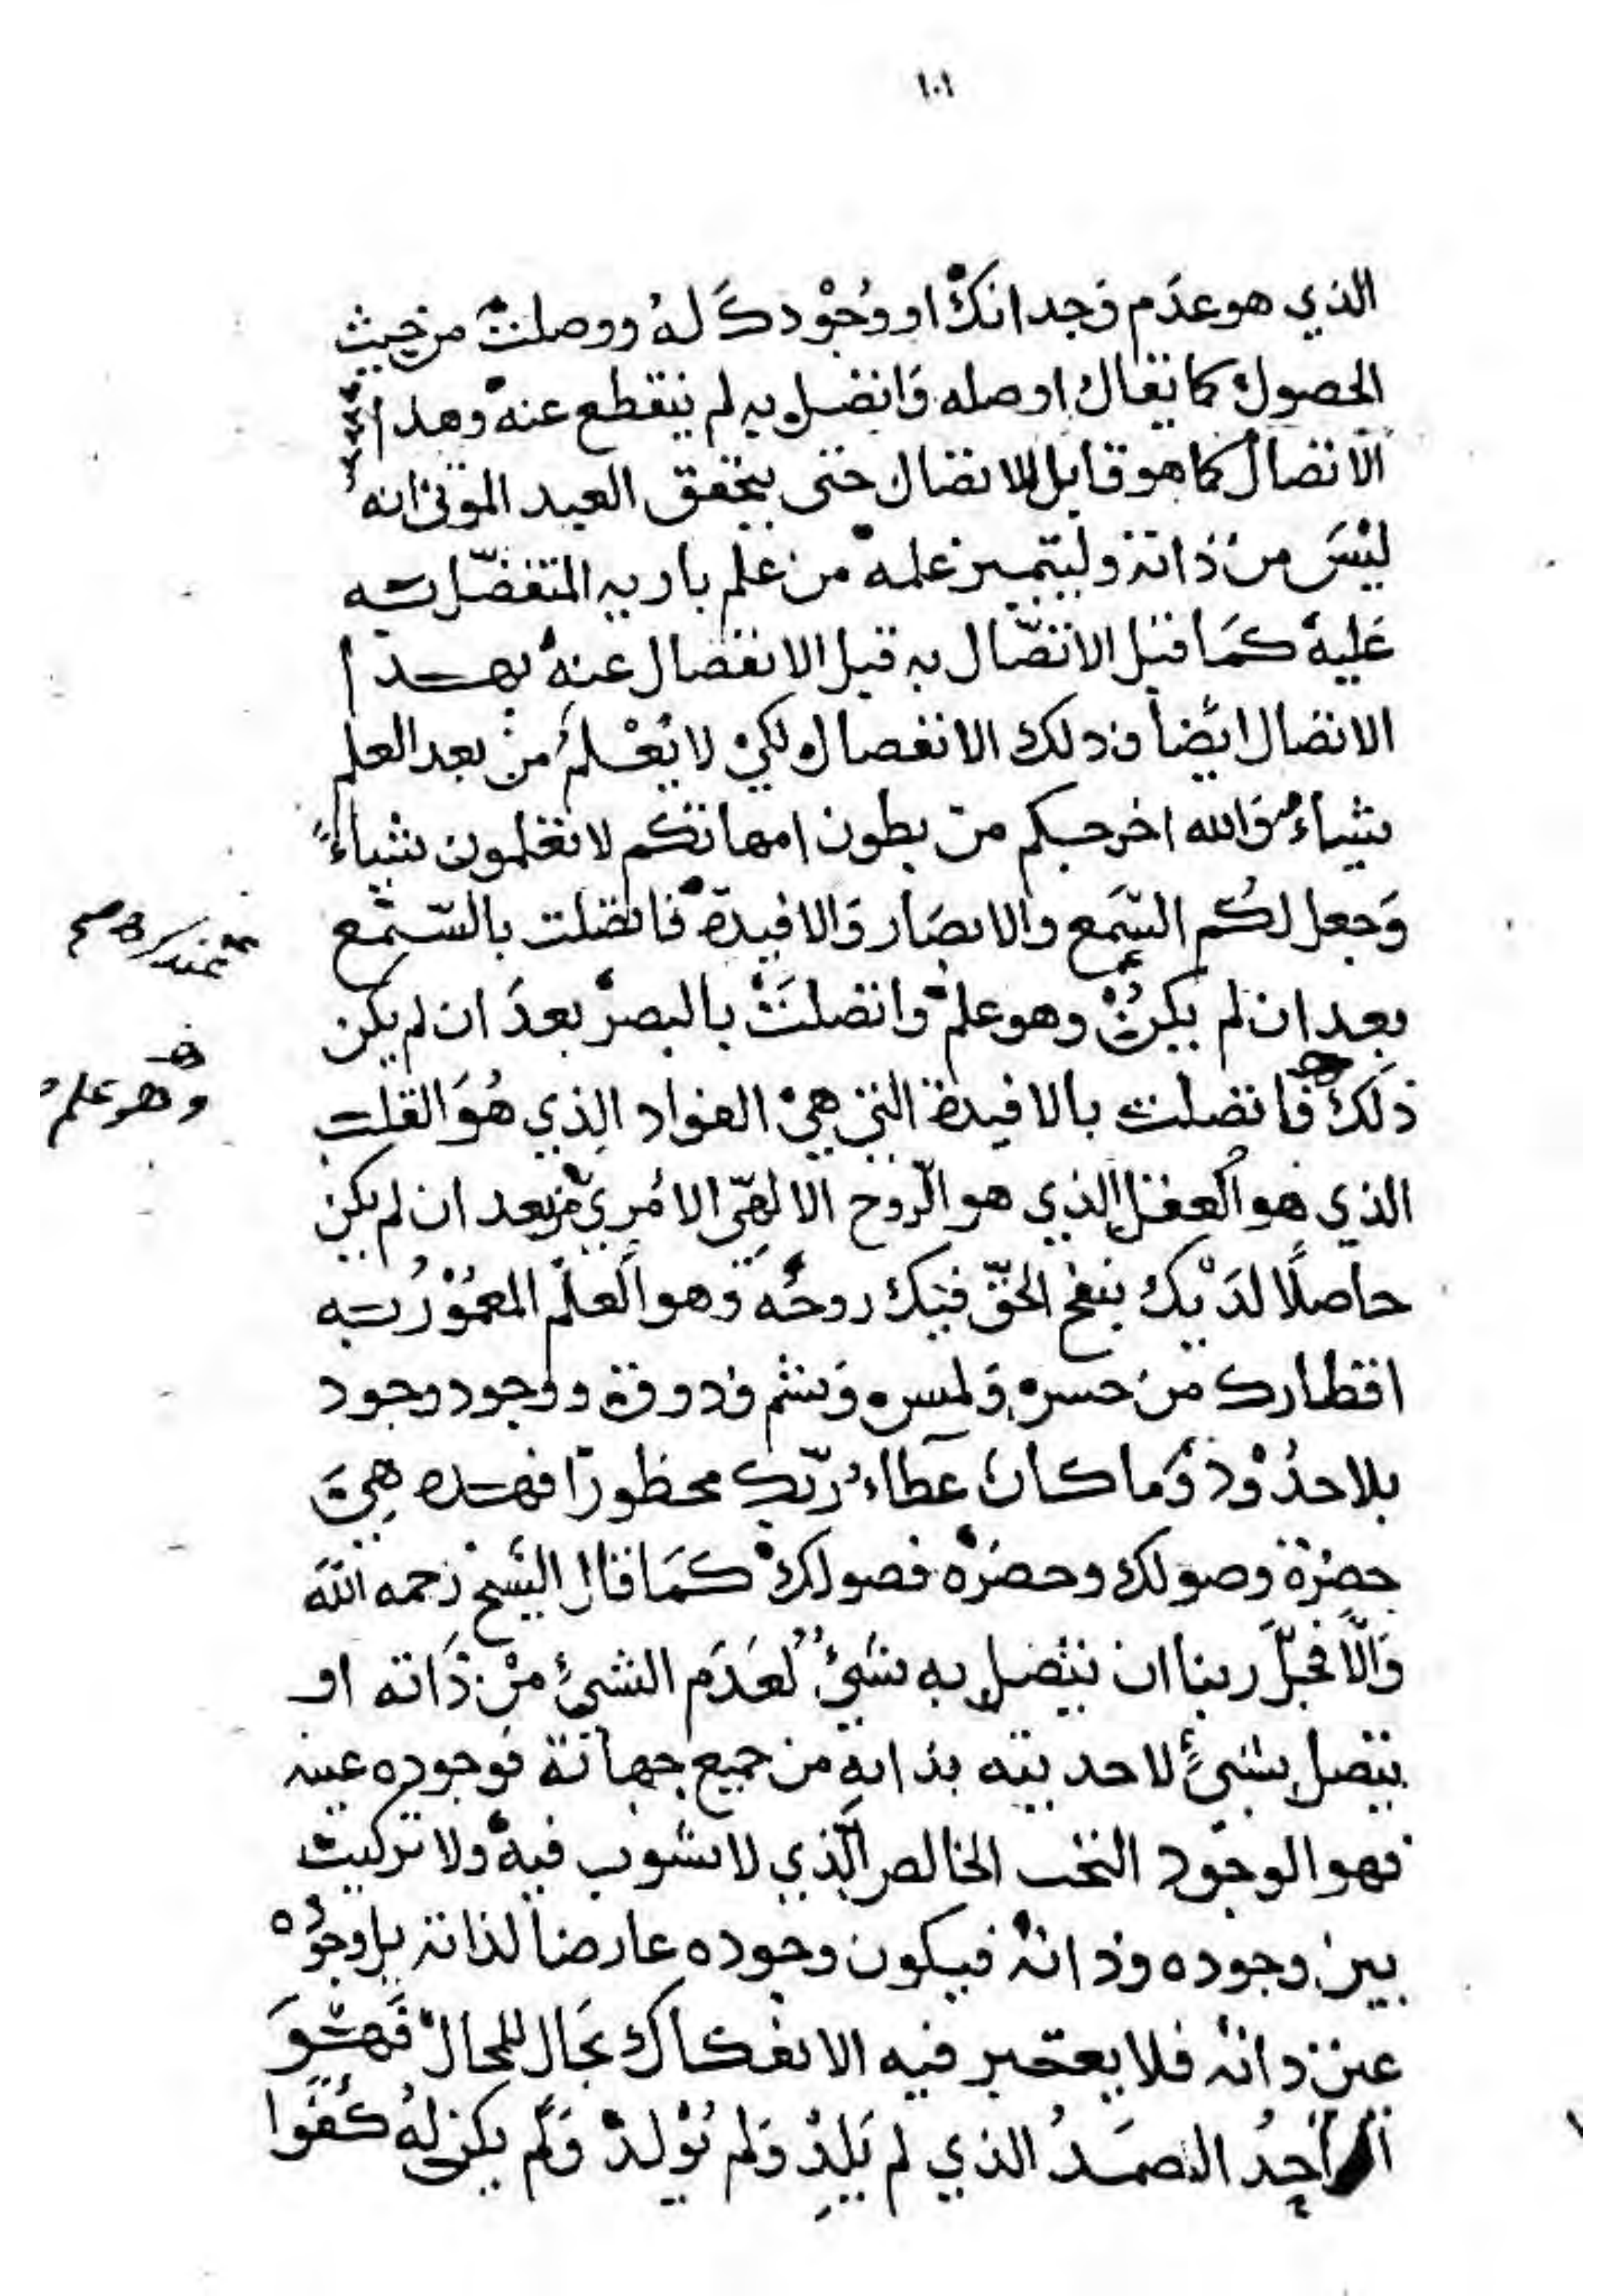 ١٠١
الذي هو عدم وجدانك او وُجُوْدكَ لهُ ووصلت من حيث
الحصول كما يقال اوصله وَاتصل به لم ينقطع عنه وهذا
الاتصال كما هو قابل للاتصال حتى يتحقق العبد الموقن انه
ليْسَ من ذاته وليتميز علمه من علم باريه المتفضّل به
عَليه كمَا قبل الاتصّال به قبل الانفصال عنهُ بهذا
الاتصال ايْضاً وذلك الانفصال لكيْ لا يَعْلمَ من بعد العلم
شياءً وَالله اخرجكم من بطون امهاتكم لا تعلمون شياءً
وَجعل لكُم السّمَع والابصَار وَالافيدة فاتصلت بالسّمْع
بعد ان لم يكنْ وهو علم واتصلتْ بالبصر بعدَ ان لم يكن
وهو علمُ
ذلكَ فاتصلت بالافيدة التي هيْ الفواد الذي هُوَ القلب
الذي هو العقل الذي هو الرّوح الالهيّ الامْريّ من بعد ان لم يكن
حاصلًا لدَيْك بنفخ الحقّ فيْك روحُه وهو العلم المعمُوْرُ به
اقطارك من حس وَلمس وَشم وذوق ووجود وجود
بلا حدُوْد وَما كان عَطاءُ ربّكَ محظورًا فهذه هيَ
حضرة وصولك وحضرْه فصولك كمَا قال الشيخ رحمه الله
وَالّا فجلّ ربنا ان يتصل به شيْءُ لعَدَم الشيءُ منْ ذَاته او
يتصل بشيءٍ لاحديته بذاته من جميع جهاته فوجوده عينه
فهو الوجود البحت الخالص الّذي لا شوب فيه ولا تركيب
بين وجوده وذاته فيكون وجوده عارضاً لذاته بل وجُوُده
عين ذاته فلا يعتبر فيه الانفكاك بحَال للمحال فَهوَ
اَحدُ الصمَدُ الذي لم يَلِدْ وَلم يُوْلدْ وَلم يكن لهُ كُفُوا